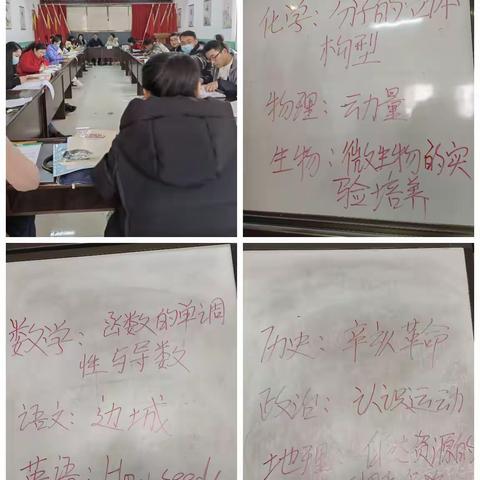 化学：分子的立体
构型
物理：动量
生物：微生物的实
验培养
数学：函数的单调
性与导数
语文：边城
英语：How seeds
历史：辛亥革命
政治：认识运动
地理：资源的